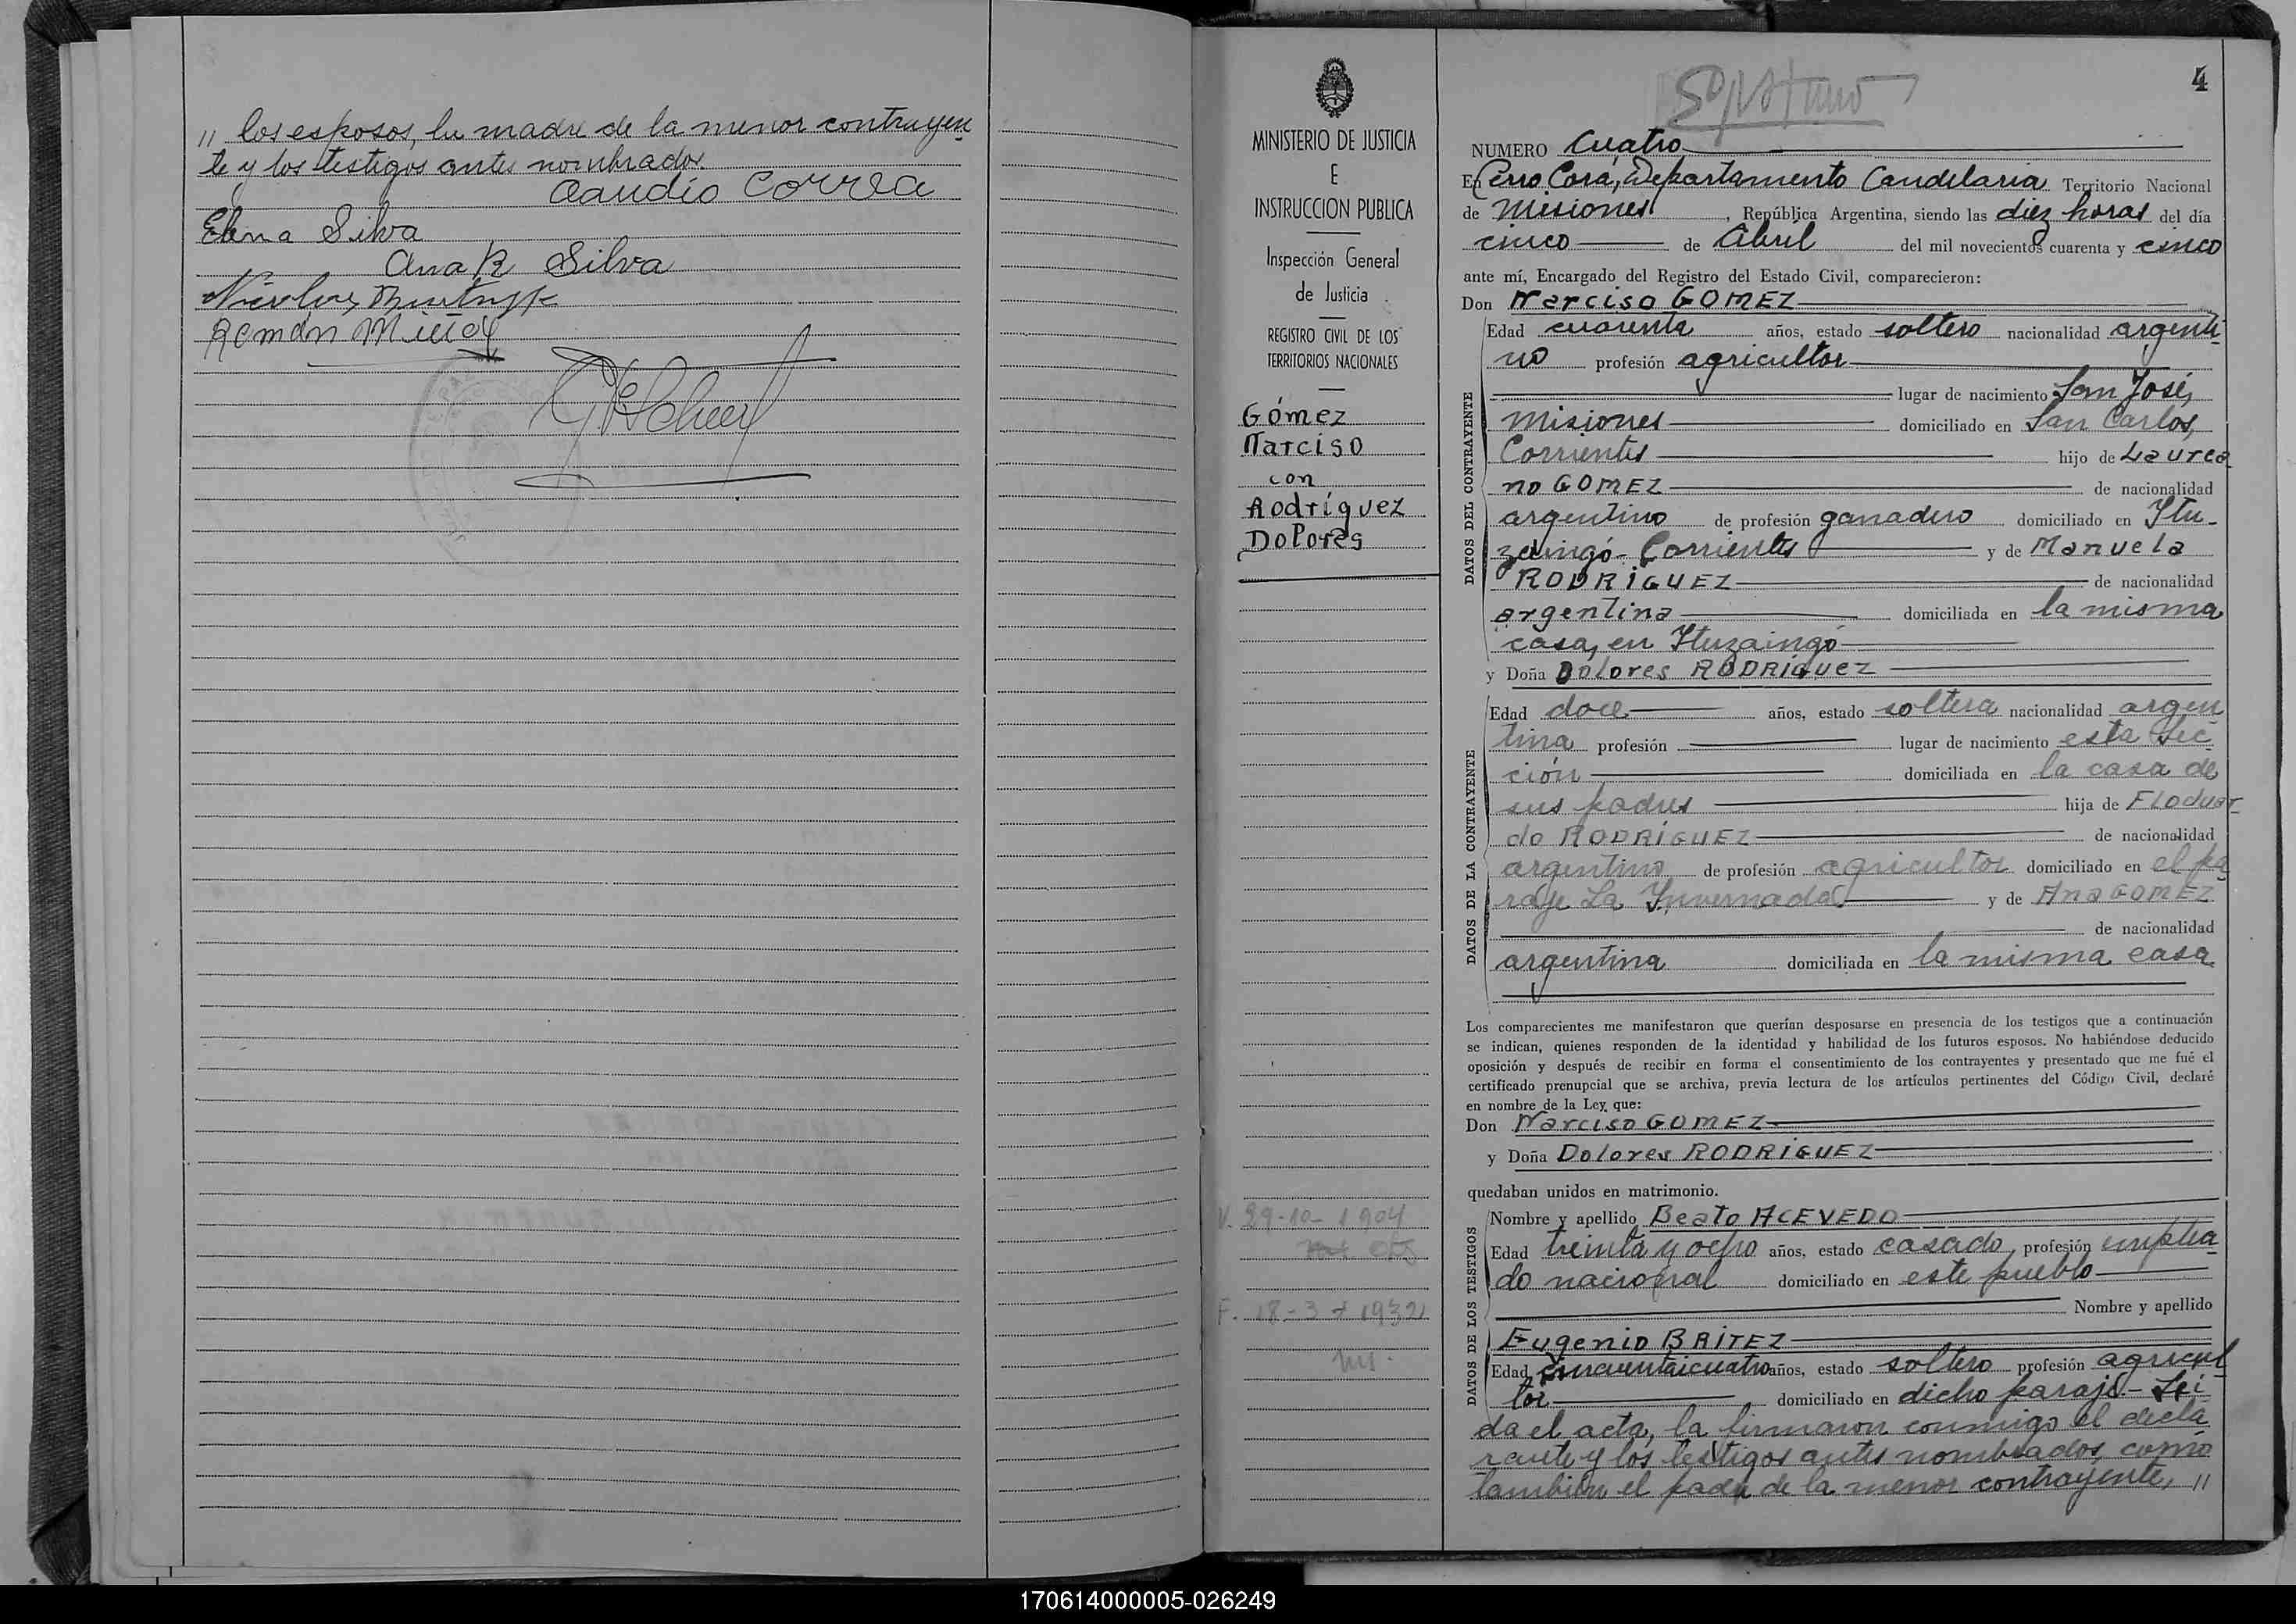 " los esposos, la madre de la menor contrayen
te y los testigos antes nombrados.
Claudio Correa
Elena Silva
Ana R Silva
Román
4
MINISTERIO DE JUSTICIA
E
INSTRUCCION PUBLICA
Inspección General
de Justicia
REGISTRO CIVIL DE LOS
TERRITORIOS NACIONALES
Gómez
Narciso
con
Rodríguez
Dolores
V. 29-10-1904
F. 18-3-1932
NUMERO Cuatro
En Cerro Corá, Departamento Candelaria Territorio Nacional
de Misiones, República Argentina, siendo las diez horas del día
cinco de Abril del mil novecientos cuarenta y cinco
ante mí, Encargado del Registro del Estado Civil, comparecieron:
Don Narciso GOMEZ
DATOS DEL CONTRAYENTE
Edad cuarenta años, estado soltero nacionalidad argenti
no profesión agricultor
lugar de nacimiento San José,
Misiones domiciliado en San Carlos,
Corrientes hijo de Laurea
no GOMEZ de nacionalidad
argentino de profesión ganadero domiciliado en Itu-
zaingó - Corrientes y de Manuela
RODRIGUEZ de nacionalidad
argentina domiciliada en la misma
casa, en Ituzaingó
y Doña Dolores RODRIGUEZ
DATOS DE LA CONTRAYENTE
Edad doce años, estado soltera nacionalidad argen
tina profesión lugar de nacimiento esta sec
ción domiciliada en la casa de
sus padres hija de Floduar
do RODRIGUEZ de nacionalidad
argentino de profesión agricultor domiciliado en el pa
raje La Invernada y de Ana GOMEZ
de nacionalidad
argentina domiciliada en la misma casa
Los comparecientes me manifestaron que querían desposarse en presencia de los testigos que a continuación
se indican, quienes responden de la identidad y habilidad de los futuros esposos. No habiéndose deducido
oposición y después de recibir en forma el consentimiento de los contrayentes y presentado que me fué el
certificado prenupcial que se archiva, previa lectura de los artículos pertinentes del Código Civil, declaré
en nombre de la Ley que:
Don Narciso GOMEZ
y Doña Dolores RODRIGUEZ
quedaban unidos en matrimonio.
DATOS DE LOS TESTIGOS
Nombre y apellido Beato ACEVEDO
Edad treinta y ocho años, estado casado, profesión emplea
do nacional domiciliado en este pueblo
Nombre y apellido
Eugenio BRITEZ
Edad cincuentaicuatro años, estado soltero profesión agricul
tor domiciliado en dicho paraje - Leí
da el acta, la firmaron conmigo el decla
rante y los testigos antes nombrados, como
también el padre de la menor contrayente, "
170614000005-026249